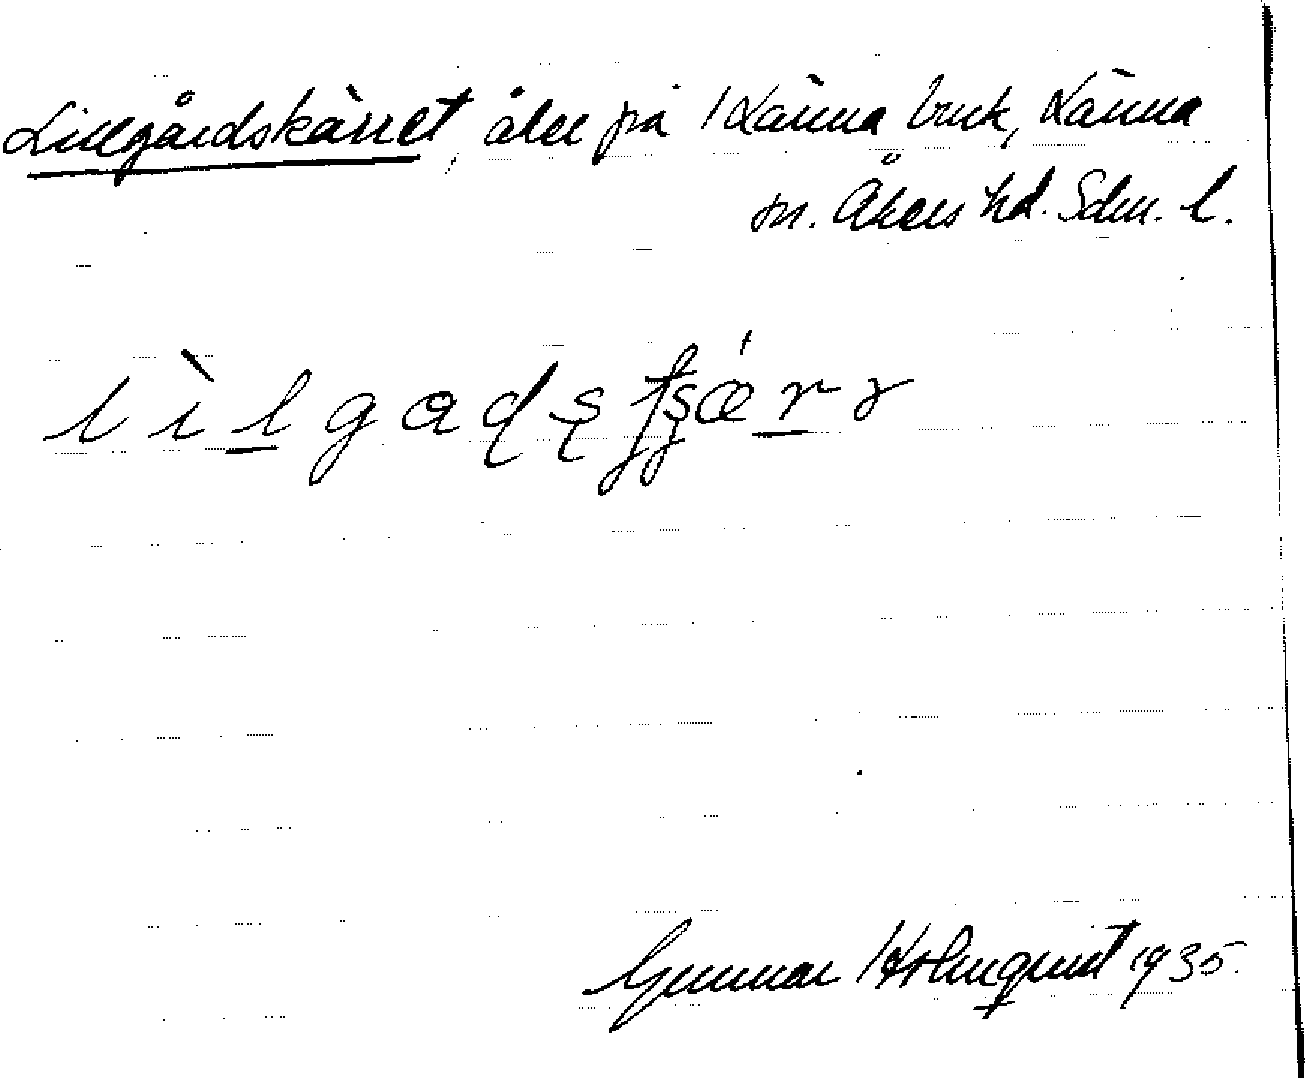 Lillgårdskärret, åker på Länna bruk, Länna
sn. Åkers hd. Sdm. l.
Gunnar Holmquist 1935.